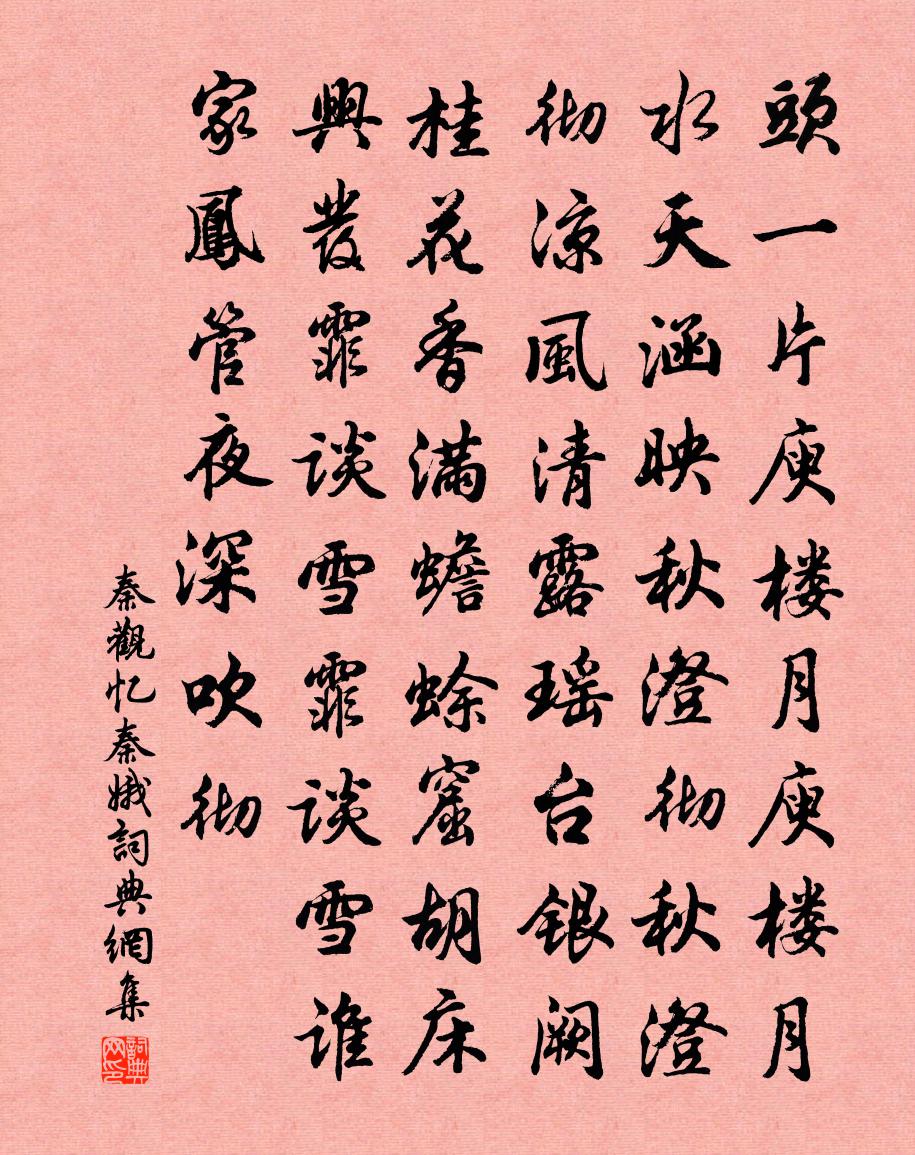 頭一片庾楼月庾楼月
水天涵映秋澄彻秋澄
彻凉風清露瑶台銀阙
桂花香满蟾蜍窟胡床
興發霏谈雪霏谈雪谁
家鳳管夜深吹彻
秦觀忆秦娥詞典網集
詞典网印